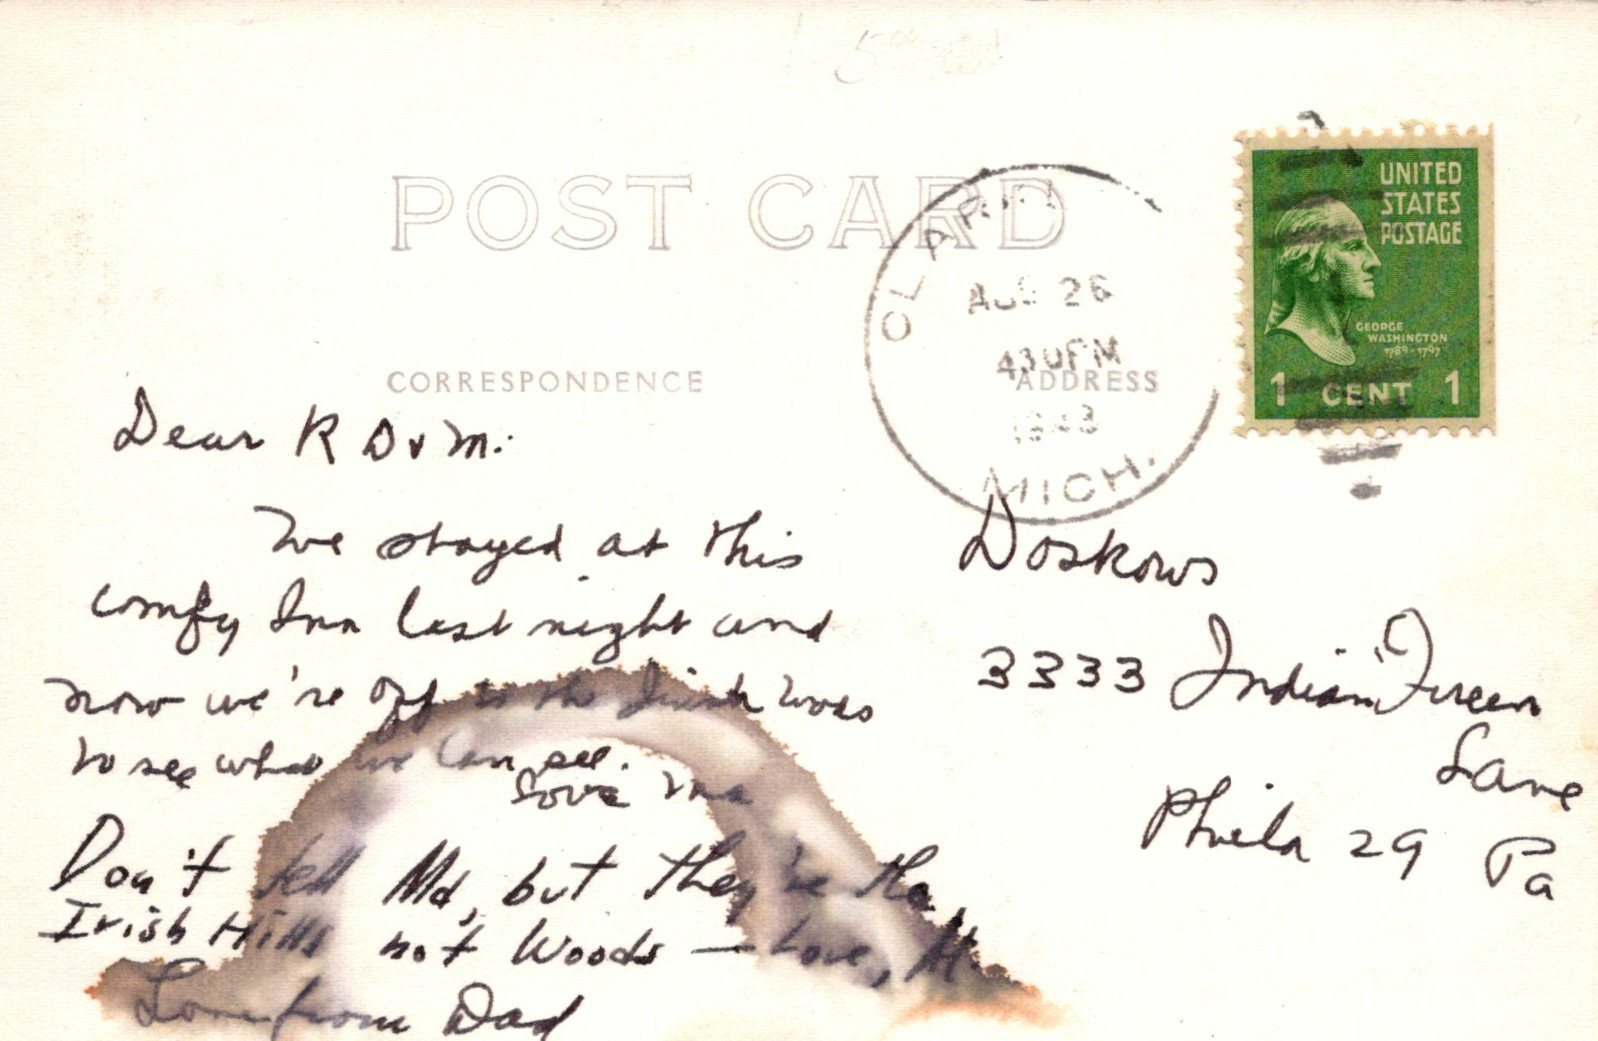 POST CARD
UNITED
STATES
POSTAGE
GEORGE
WASHINGTON
1789-1797
1 CENT 1
AUG 26
430 PM
MICH.
CORRESPONDENCE
ADDRESS
Dear R D & M:
We stayed at this
comfy Inn last night and
now we're off to the Irish Woods
to see what we can see.
Love Ma
Don't tell Md, but they're the
Irish Hills not Woods — Love, M.
Love from Dad
Doskows
3333 Indian Queen
Lane
Phila 29 Pa